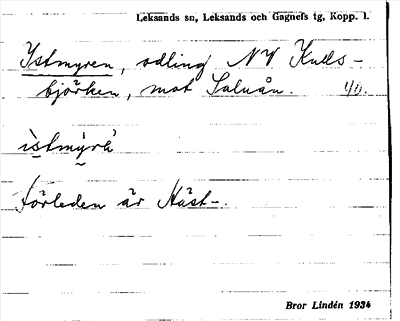 Leksands sn, Leksands och Gagnefs tg, Kopp. l.
Ystmyren, odling NV Kulls-
björken, mot Saluån. 40.
ìstmýrȧ
Förleden är Häst-.
Bror Lindén 1934